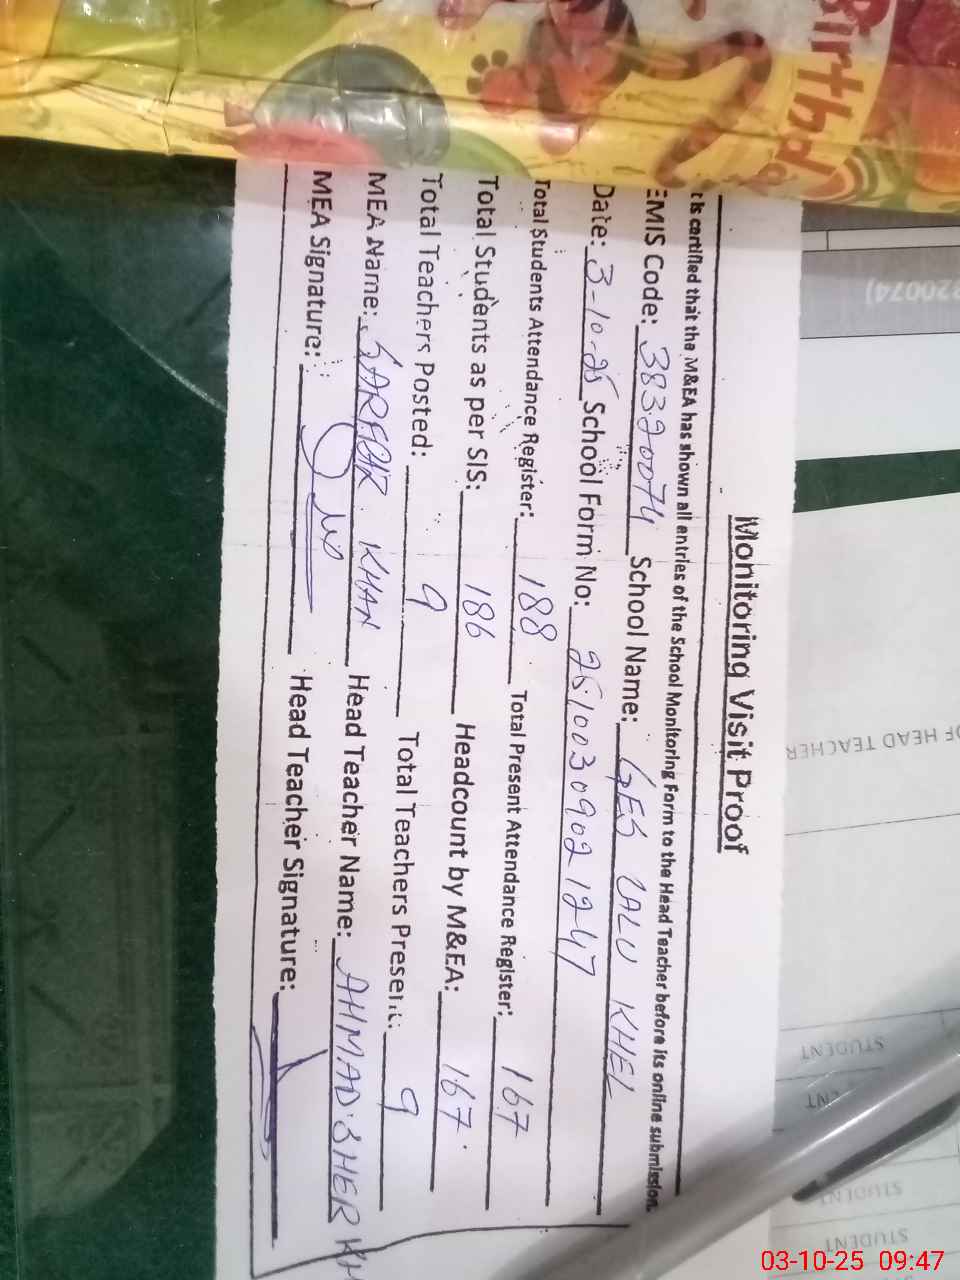 Birthd
Monitoring Visit Proof
t is certified that the M&EA has shown all entries of the School Monitoring Form to the Head Teacher before its online submission.
EMIS Code: 38320074 School Name: GES UALU KHEL
Date: 3-10-25 School Form No: 25100309021247
Total Students Attendance Register: 188 Total Present Attendance Register: 167
Total Students as per SIS: 186 Headcount by M&EA: 167
Total Teachers Posted: 9 Total Teachers Present: 9
MEA Name: KHAN Head Teacher Name: AHMAD SHER KH
MEA Signature: Head Teacher Signature:
20074)
OF HEAD TEACHER
STUDENT
NT
STUDENT
STUDENT
03-10-25 09:47